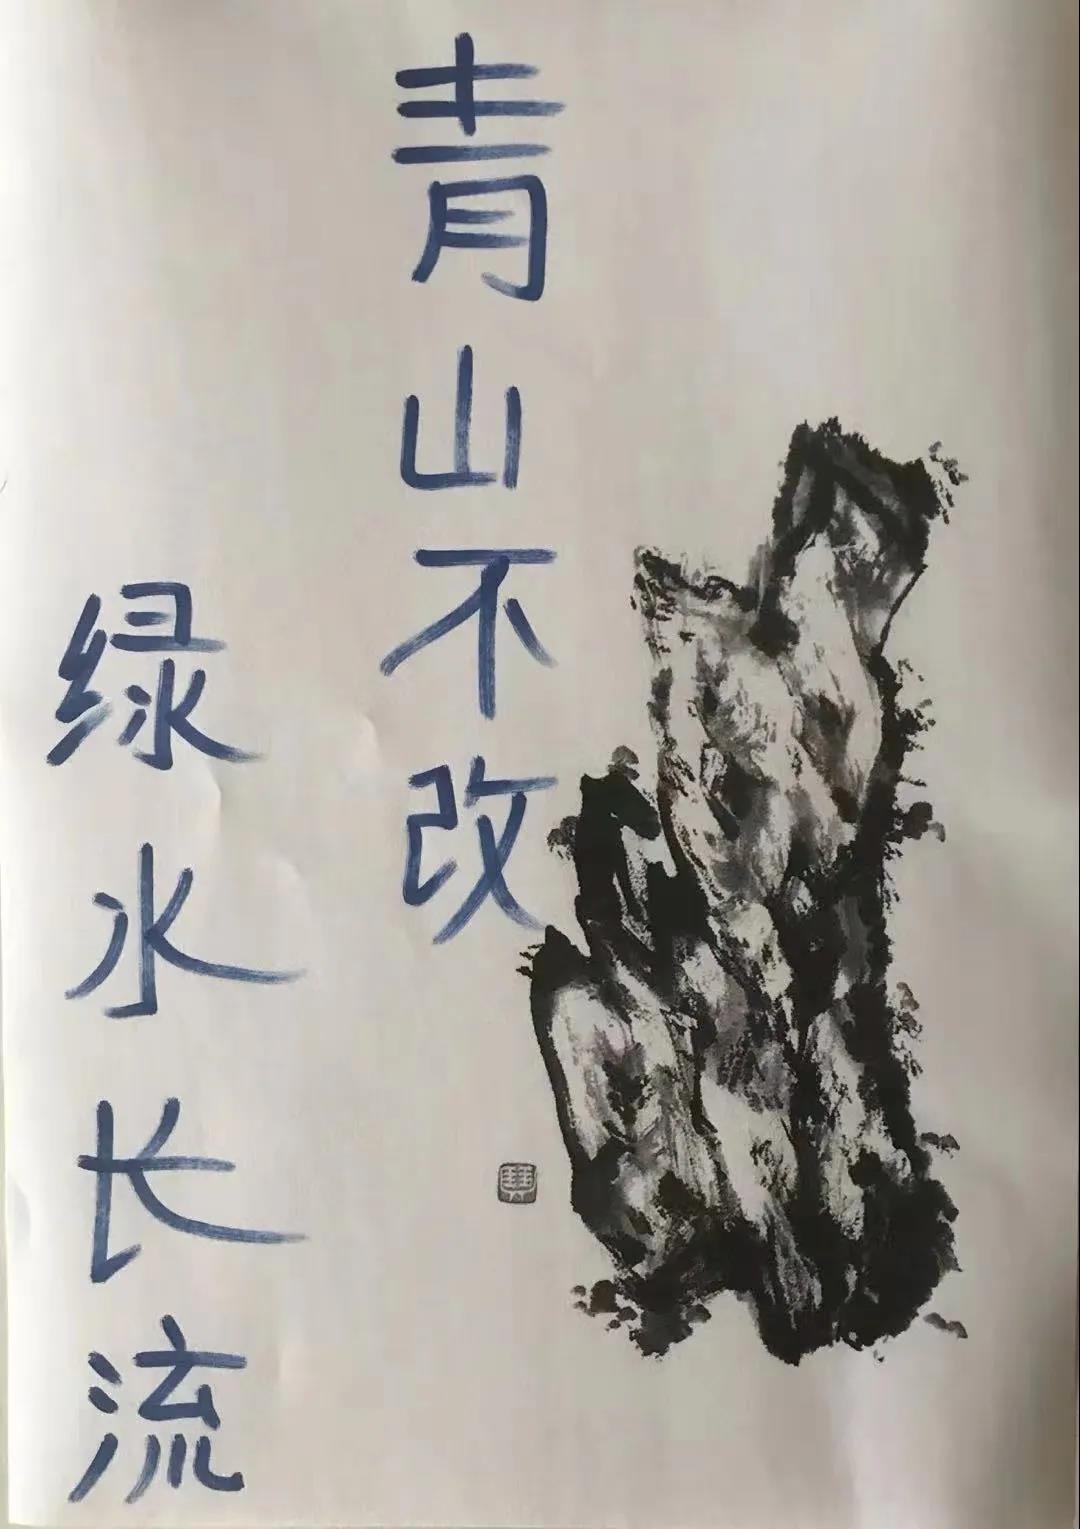 青山不改
绿水长流